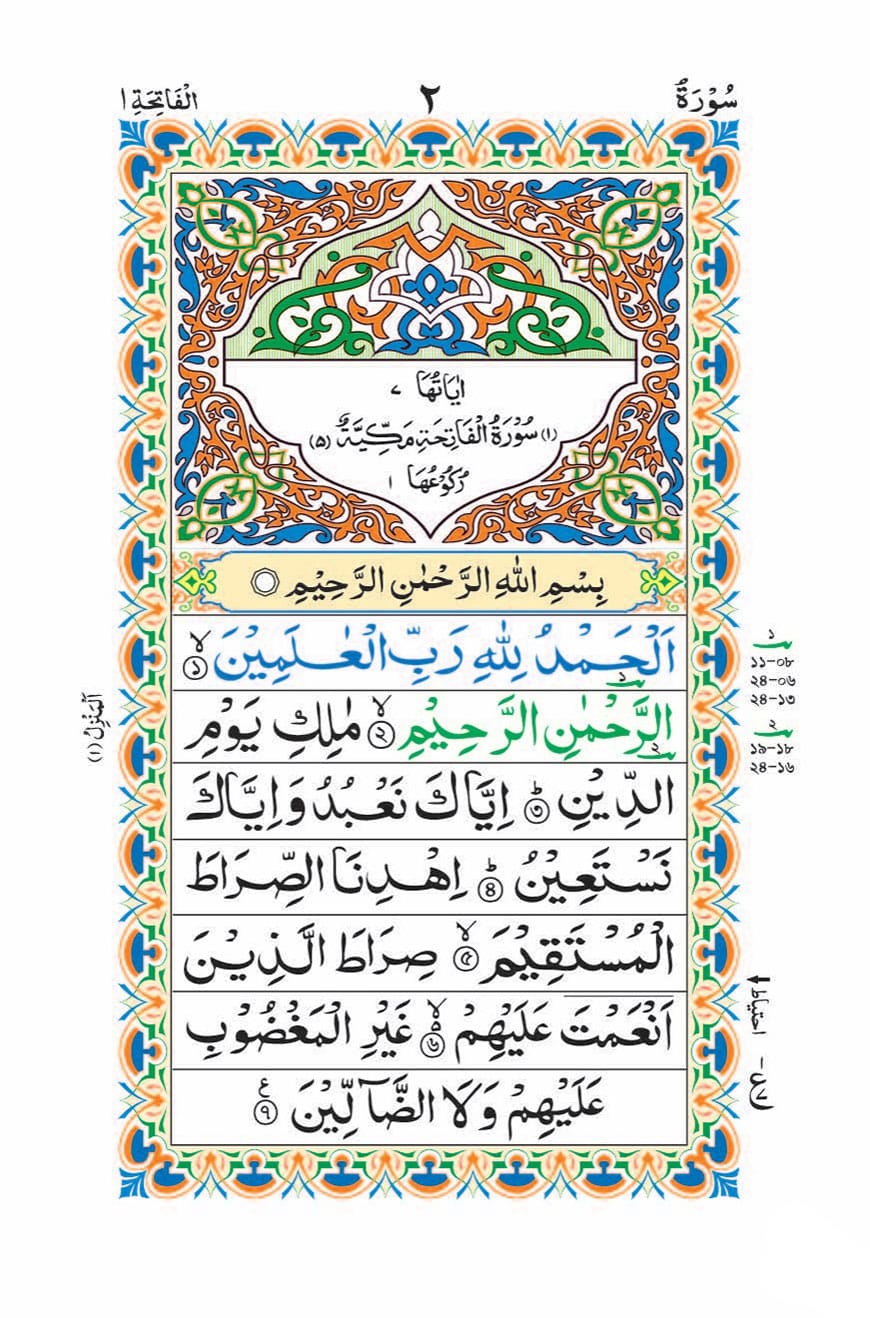 سُوْرَةُ ٢ الْفَاتِحَةِ ١
اٰيَاتُهَا ٧
(١) سُوْرَةُ الْفَاتِحَةِ مَكِّيَّةٌ (٥)
رُكُوْعُهَا ١
بِسْمِ اللّٰهِ الرَّحْمٰنِ الرَّحِيْمِ
اَلْحَمْدُ لِلّٰهِ رَبِّ الْعٰلَمِيْنَ ۙ ١
الرَّحْمٰنِ الرَّحِيْمِ ۙ ٢ مٰلِكِ يَوْمِ
الدِّيْنِ ؕ ٣ اِيَّاكَ نَعْبُدُ وَاِيَّاكَ
نَسْتَعِيْنُ ؕ ۴ اِهْدِنَا الصِّرَاطَ
الْمُسْتَقِيْمَ ۙ ۵ صِرَاطَ الَّذِيْنَ
اَنْعَمْتَ عَلَيْهِمْ ۙ ۶ غَيْرِ الْمَغْضُوْبِ
عَلَيْهِمْ وَلَا الضَّآلِّيْنَ
اَلْمَنْزِلُ (١)
احتياط